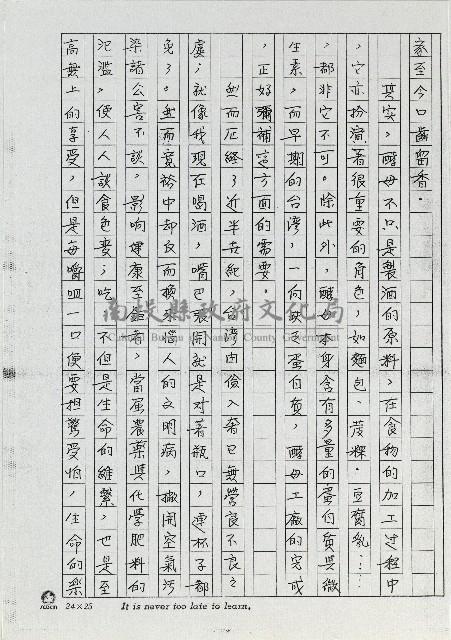 家至今口齒留香。
其實，酵母不只是製酒的原料，在食物的加工過程中
，它亦扮演著很重要的角色，如麵包、茂粿、豆腐乳……
，都非它不可。除此外，酵母本身含有多量的蛋白質與微
生素，而早期的台灣，一向缺乏蛋白質，酵母工廠的完成
，正好彌補這方面的需要。
然而歷經了近半世紀，台灣由儉入奢已無營良不良之
慮；就像我現在喝酒，嘴巴張開就是對著瓶口，連杯子都
免了。然而意衿中却反而換來惱人的文明病，撇開空氣污
染諸公害不談，影响健康至鉅者，當屬農藥與化學肥料的
氾濫，使人人談食色喪；吃，不但是生命的維繫，也是至
高無上的享受，但是每嚼咀一口便要担驚受怕，生命的樂
南投縣政府文化局
Cultural Bureau of Nantou County Government
24×25 It is never too late to learn.